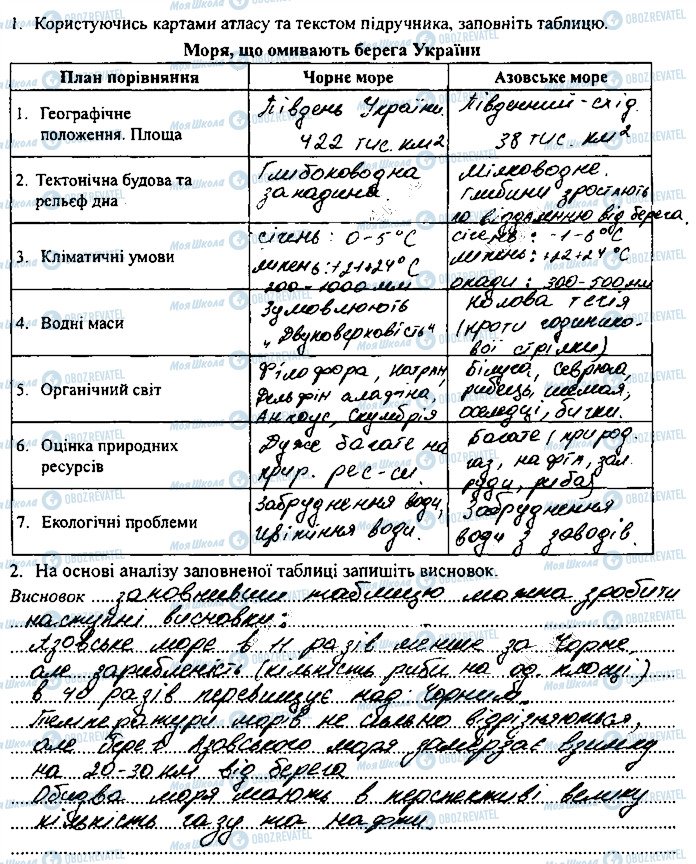 1. Користуючись картами атласу та текстом підручника, заповніть таблицю.
Моря, що омивають берега України
План порівняння Чорне море Азовське море
1. Географічне положення. Площа
Південь України. 422 тис. км2
Південний-схід. 38 тис. км2
2. Тектонічна будова та рельєф дна
Глибоководна западина.
Мілководне. Глибини зростають по віддаленню від берега.
3. Кліматичні умови
січень: 0-5°С
липень: +21+24°С
300-1000 мм
січень: -1-6°С
липень: +22+24°С
опади: 300-500 мм
4. Водні маси
Зумовлюють "Двуповерховість"
Колова течія (проти годинико-
вої стрілки)
5. Органічний світ
Філофора, натрян,
Дельфін
Анчоус, Скумбрія
Білуга, севрюга,
рибець, шемая,
оселедці, бички.
6. Оцінка природних ресурсів
Дуже багате на
прир. рес-си.
Багате (природ.
газ, нафта, зал.
руди, риба)
7. Екологічні проблеми
Забруднення води,
цвітіння води.
Забруднення
води з заводів.
2. На основі аналізу заповненої таблиці запишіть висновок.
Висновок заповнивши таблицю можна зробити
наступні висновки:
Азовське море в 11 разів менше за Чорне,
але зарибленість (кількість риби на од. площі)
в 40 разів перевищує над Чорним.
Температури морів не сильно відрізняються,
але берег Азовського моря замерзає взимку
на 20-30 км від берега
Обидва моря мають в перспективі велику
кількість газу та нафти.
Моя Школа OBOZREVATEL